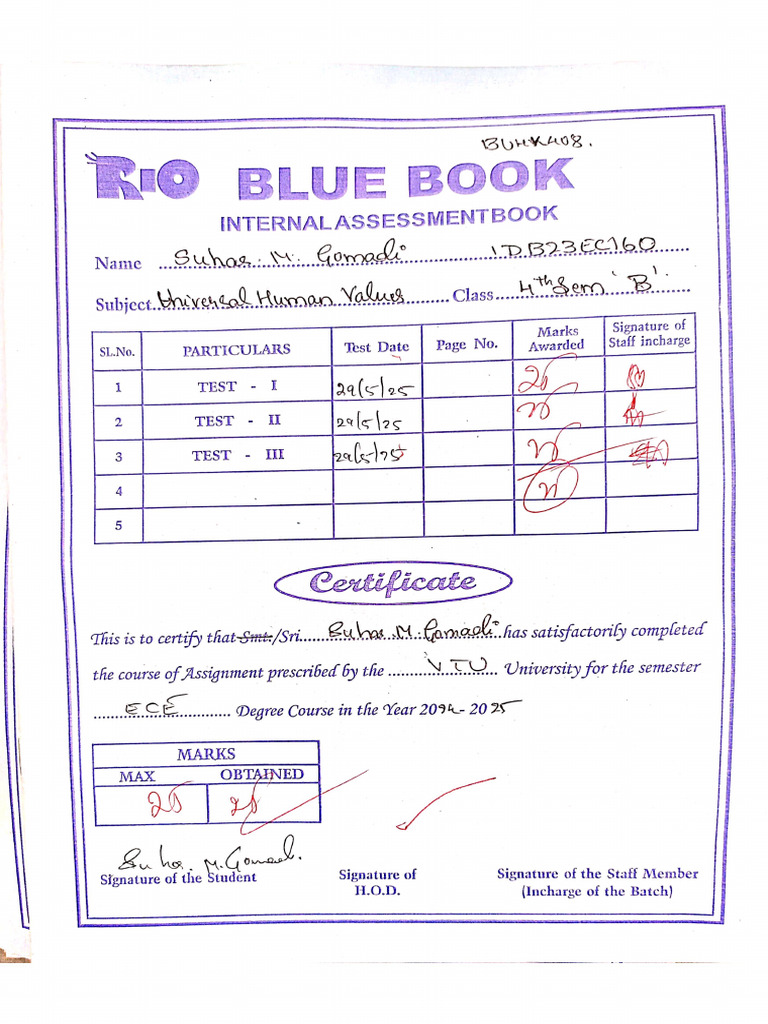 BUHK408.
RIO BLUE BOOK
INTERNAL ASSESSMENT BOOK
Name Suhas. M. Gomadi 1DB23EC160
Subject Universal Human Values Class 4th Sem 'B'
SL.No. PARTICULARS Test Date Page No. Marks Awarded Signature of Staff incharge
1 TEST - I 29/5/25 25
2 TEST - II 29/5/25
3 TEST - III 29/5/25
4
5
Certificate
This is to certify that Smt./Sri Suhas M. Gomadi has satisfactorily completed
the course of Assignment prescribed by the VTU University for the semester
ECE Degree Course in the Year 2024 - 2025
MARKS
MAX OBTAINED
25 25
Suhas. M. Gomadi.
Signature of the Student
Signature of
H.O.D.
Signature of the Staff Member
(Incharge of the Batch)